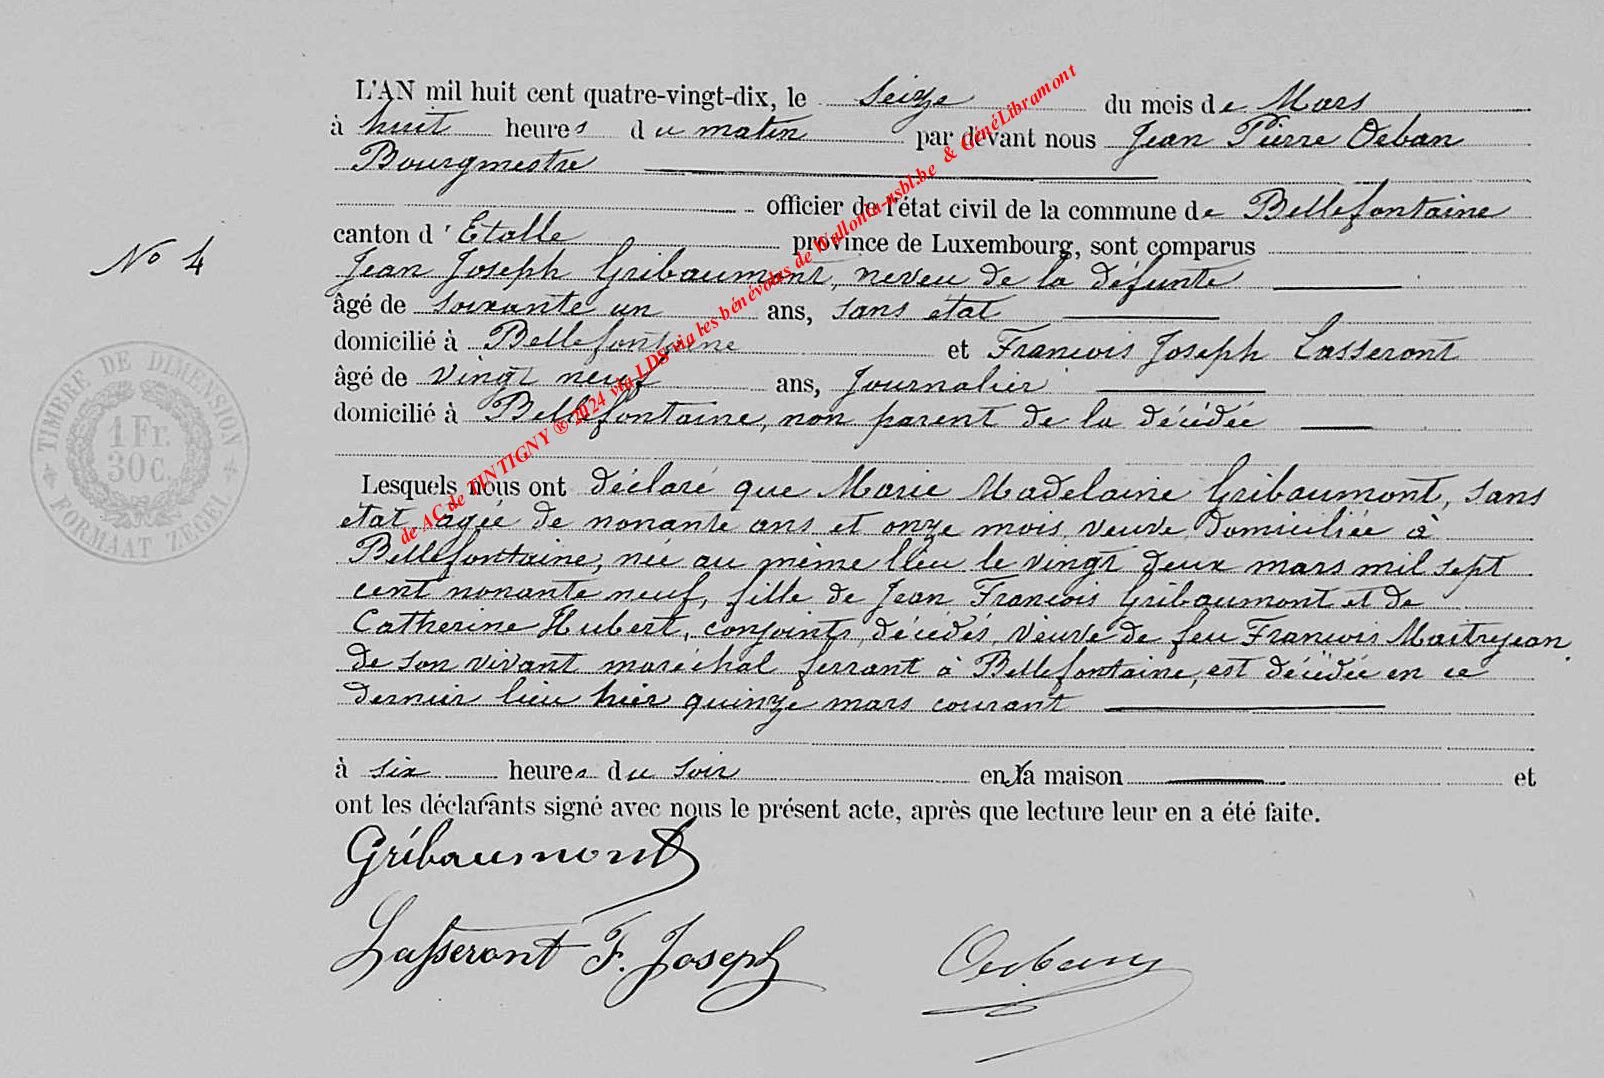 L'AN mil huit cent quatre-vingt-dix, le seize du mois de Mars
à huit heures du matin par devant nous Jean Pierre Orban
Bourgmestre
officier de l'état civil de la commune de Bellefontaine
canton d'Etalle province de Luxembourg, sont comparus
No 4
Jean Joseph Gribaumont, neveu de la défunte
âgé de soixante un ans, sans état
domicilié à Bellefontaine et Francois Joseph Lasseront
âgé de vingt neuf ans, Journalier
domicilié à Bellefontaine, non parent de la décédée
TIMBRE DE DIMENSION
1 Fr.
30 C.
FORMAAT ZEGEL
Lesquels nous ont déclaré que Marie Madelaine Gribaumont, sans
etat agée de nonante ans et onze mois, veuve domiciliée à
Bellefontaine, née au même lieu le vingt deux mars mil sept
cent nonante neuf, fille de Jean Francois Gribaumont et de
Catherine Hubert, conjoints décédés, veuve de feu Francois Maitrejean
de son vivant maréchal ferrant à Bellefontaine, est décédée en ce
dernier lieu hier quinze mars courant
à six heures du soir en la maison et
ont les déclarants signé avec nous le présent acte, après que lecture leur en a été faite.
Gribaumont
Lasseront F. Joseph
Orban
de AC de TINTIGNY ® 2024 via LDS via les bénévoles de Wallonia-asbl.be & GénéLibramont